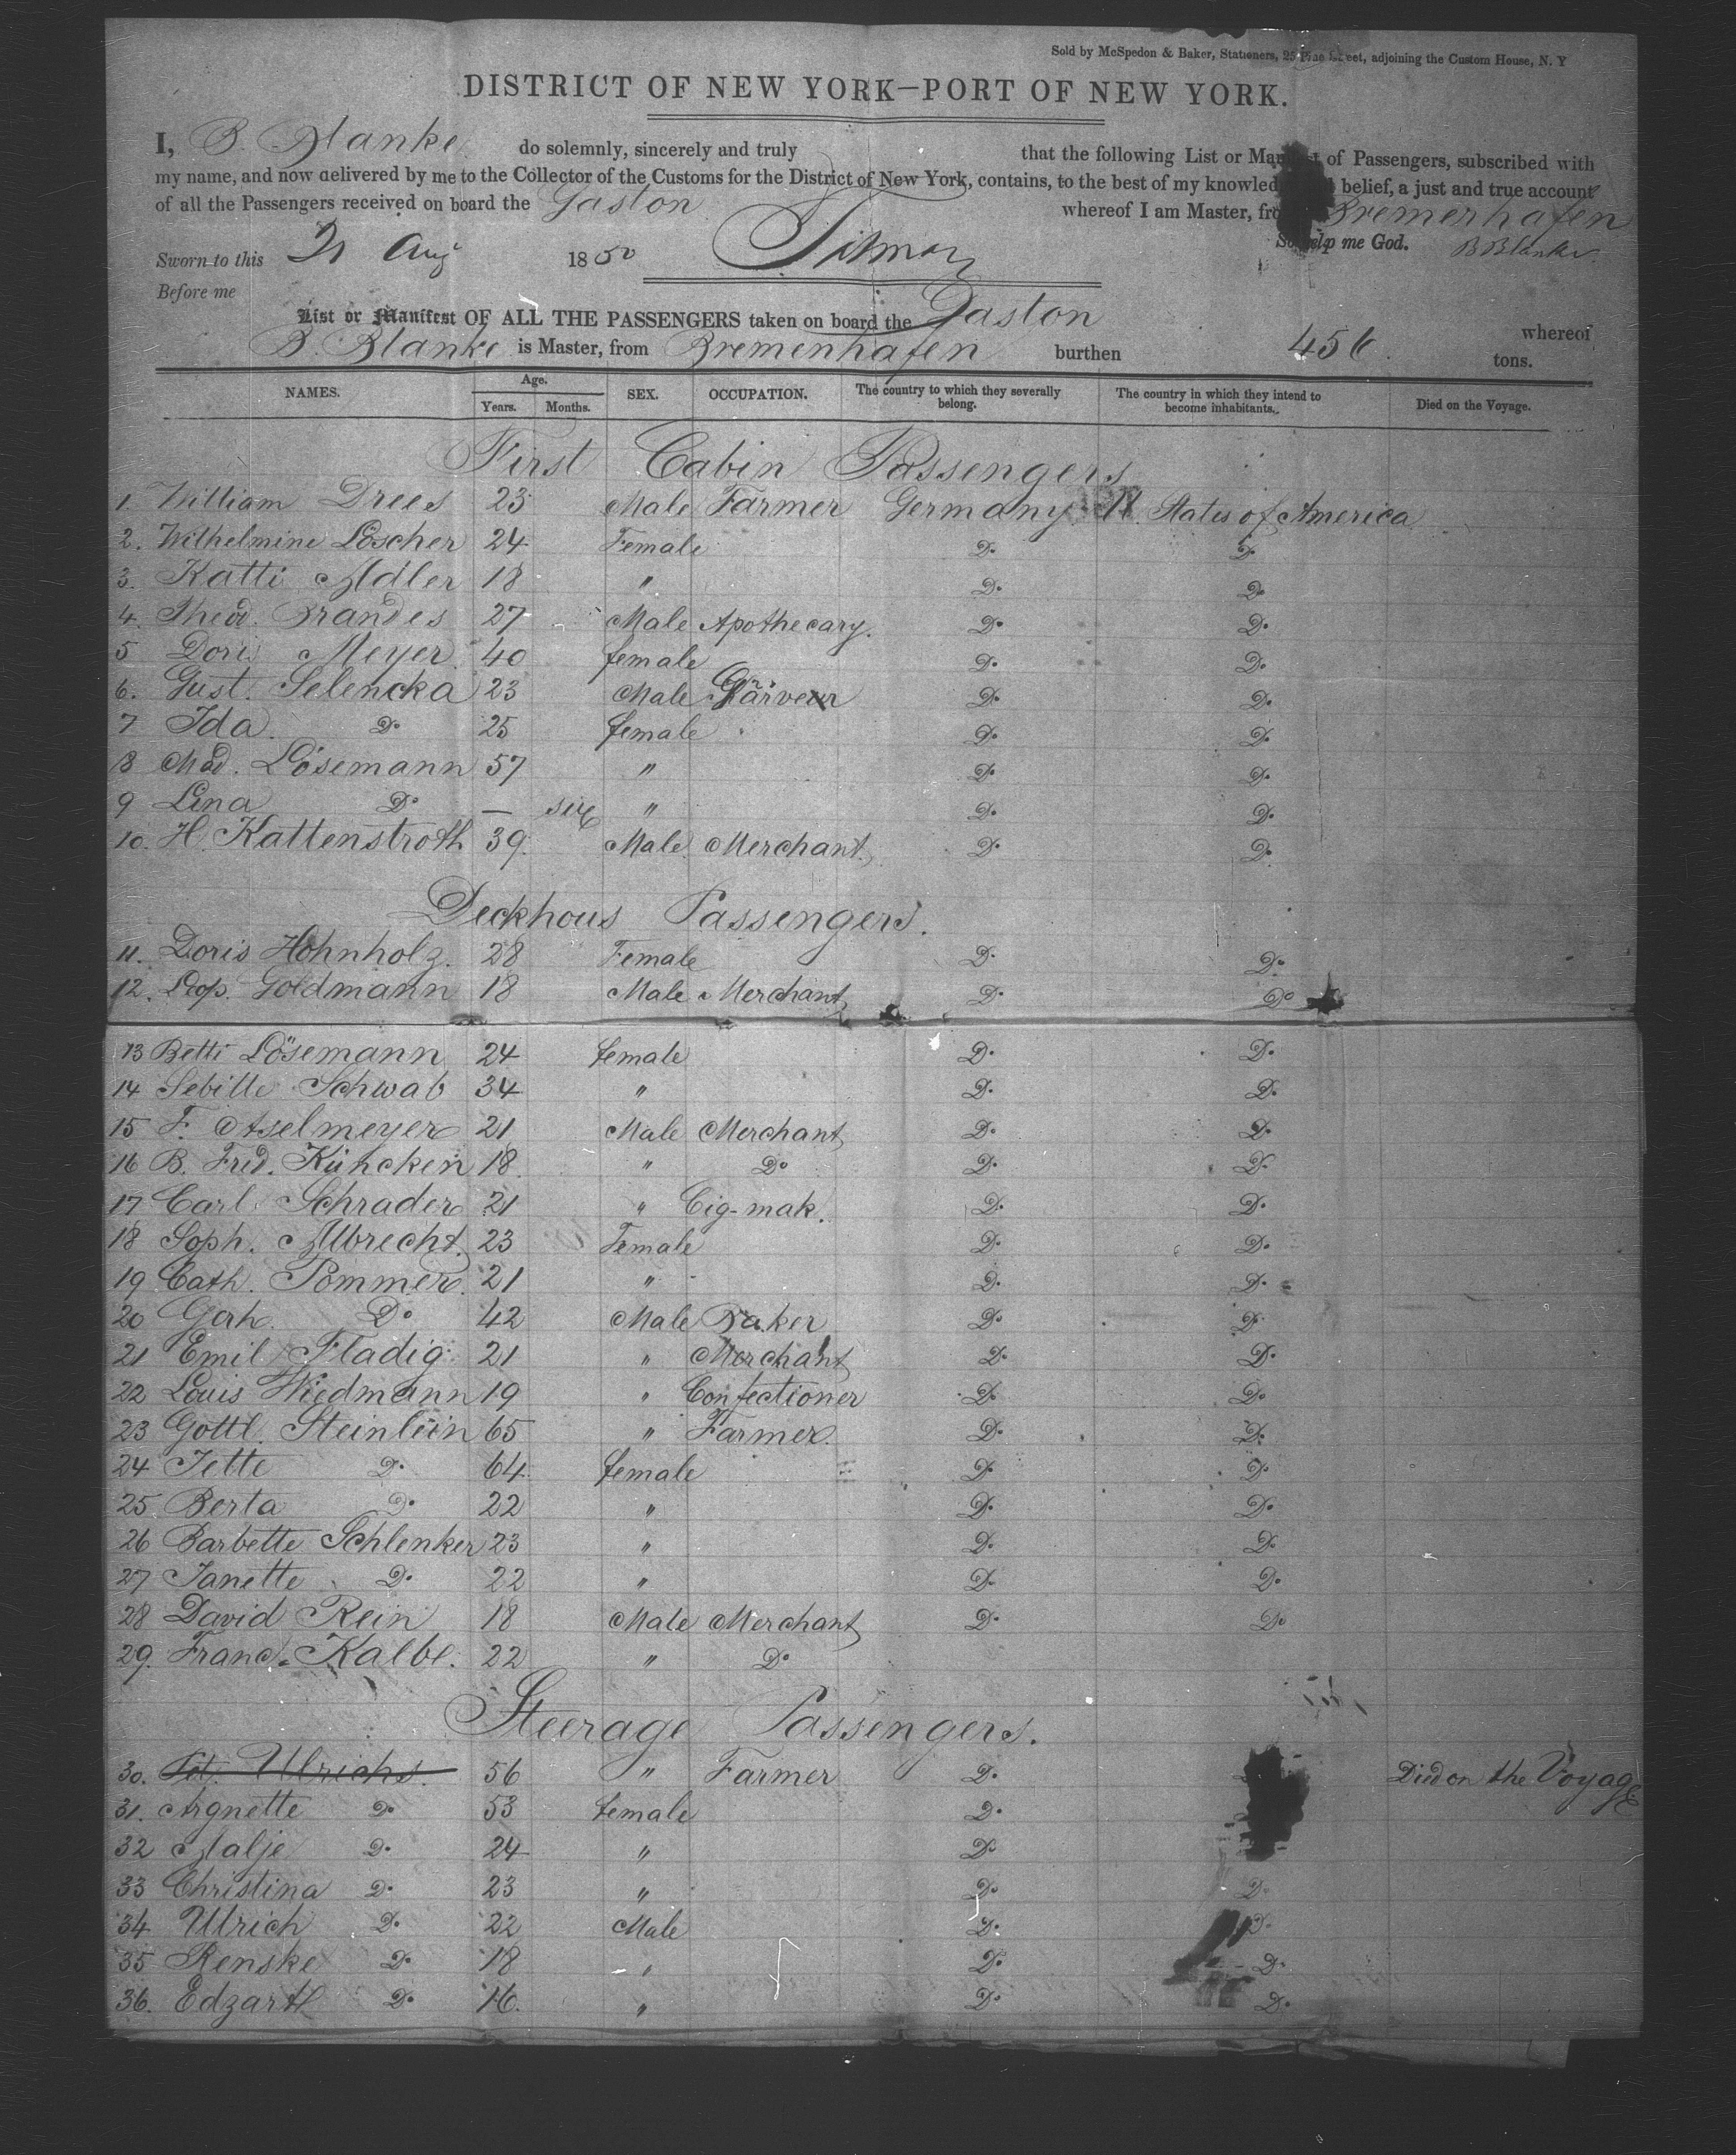 Sold by McSpedon & Baker, Stationers, 25 Pine Street, adjoining the Custom House, N. Y
DISTRICT OF NEW YORK—PORT OF NEW YORK.
I, B. Blanke do solemnly, sincerely and truly that the following List or Manifest of Passengers, subscribed with
my name, and now delivered by me to the Collector of the Customs for the District of New York, contains, to the best of my knowled belief, a just and true account
of all the Passengers received on board the Gaston whereof I am Master, from Bremerhafen
Sworn to this 21 Aug 1850 So help me God. B Blanke
Before me
List or Manifest OF ALL THE PASSENGERS taken on board the Gaston whereof
B. Blanke is Master, from Bremenhafen burthen 456 tons.
NAMES. Age. Years. Months. SEX. OCCUPATION. The country to which they severally belong. The country in which they intend to become inhabitants. Died on the Voyage.
First Cabin Passengers
1. William Drees 23 Male Farmer Germany U. States of America
2. Wilhelmine Löscher 24 Female Do Do
3. Katti Adler 18 " Do Do
4. Theod. Brandes 27 Male Apothecary. Do Do
5 Doris Meyer 40 female Do Do
6. Gust. Selencka 23 Male Do Do
7 Ida Do 25 female Do Do
8 Mad. Lösemann 57 " Do Do
9 Lina Do — six " Do Do
10. H. Kattenstroth 39 Male Merchant. Do Do
Deckhous Passengers.
11. Doris Hohnholz. 28 Female Do Do
12. Leop. Goldmann 18 Male Merchant Do Do
13 Betti Lösemann 24 female Do Do
14 Sebitte Schwab 34 " Do Do
15 F. Aselmeyer 21 Male Merchant Do Do
16 B. Fred. Küncken 18 " Do Do Do
17 Carl Schrader 21 " Cig-mak. Do Do
18 Soph. Albrecht. 23 Female Do Do
19 Cath. Pommer. 21 " Do Do
20 Gerh. Do 42 Male Baker Do Do
21 Emil Fladig 21 " Merchant Do Do
22 Louis Wiedmann 19 " Confectioner Do Do
23 Gottl. Steinlein 65 " Farmer. Do Do
24 Jette Do 64 female Do Do
25 Berta Do 22 " Do Do
26 Barbette Schlenker 23 " Do Do
27 Janette Do 22 " Do Do
28 David Rein 18 Male Merchant Do Do
29. Franc. Kalbe. 22 " Do
Steerage Passengers.
30. Ulrichs. 56 " Farmer Do Died on the Voyage
31. Argnette Do 53 female Do
32 Aalje Do 24 " Do
33 Christina Do 23 " Do Do
34 Ulrich Do 22 Male Do Do
35 Renske Do 18 " Do Do
36. Edzard Do 16. " Do Do